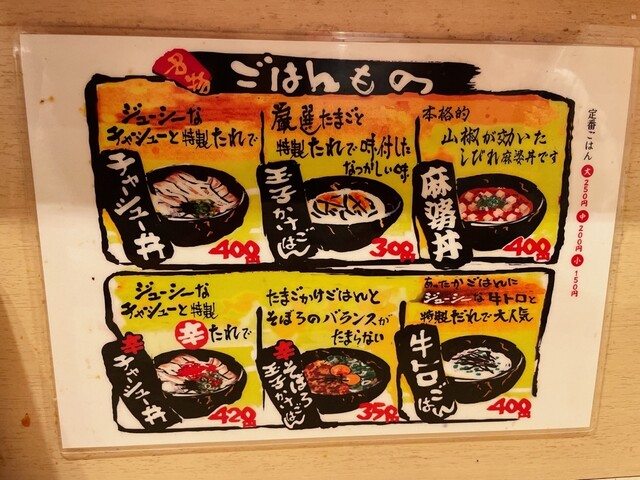 名物
ごはんもの
ジューシーな
チャーシューと特製たれで
チャーシュー丼
400円
厳選たまごと
特製たれで味付した
なつかしい味
玉子かけごはん
300円
本格的
山椒が効いた
しびれ麻婆丼です
麻婆丼
400円
ジューシーな
チャーシューと特製
辛たれで
辛チャーシュー丼
420円
たまごかけごはんと
そぼろのバランスが
たまらない
辛そぼろ
玉子かけごはん
350円
あったかごはんに
ジューシーな牛トロと
特製だれで大人気
牛トロごはん
400円
定番ごはん 大 250円 中 200円 小 150円